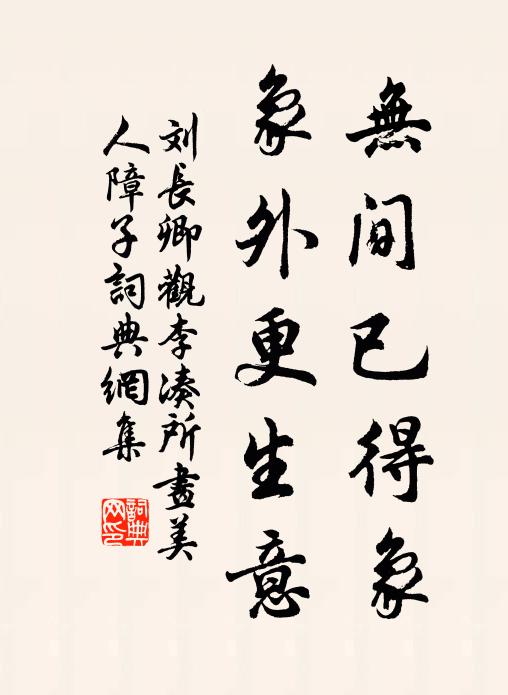 無間已得象
象外更生意
刘長卿觀李凑所畫美
人障子詞典網集
詞典
网印